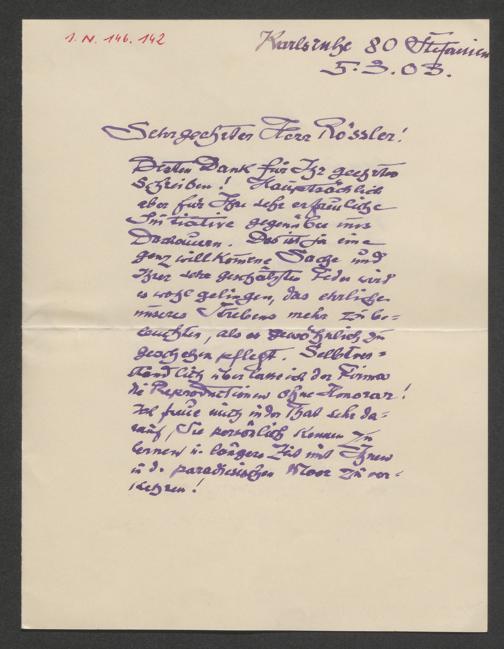 I. N. 146.142
Karlsruhe 80 Stefanien
5.3.03.
Sehrgeehrter Herr Rössler!
Besten Dank für Ihr geehrtes
Schreiben! Hauptsächlich
aber für Ihre sehr erfreuliche
Initiative gegenüber uns
Dachauern. Das ist ja eine
ganz willkomene Sache und
Ihrer sehr geschätzten Feder wird
es wohl gelingen, das ehrliche
unseres Strebens mehr zu be-
leuchten, als es gewöhnlich zu
geschehen pflegt. Selbstver=
ständlich überlasse ich der Firma
die Reproductionen ohne Honorar!
Ich freue mich in der That sehr da-
rauf, Sie persönlich kennen zu
lernen u. längere Zeit mit Ihnen
in d. paradiesischen Moor zu ver-
kehren!